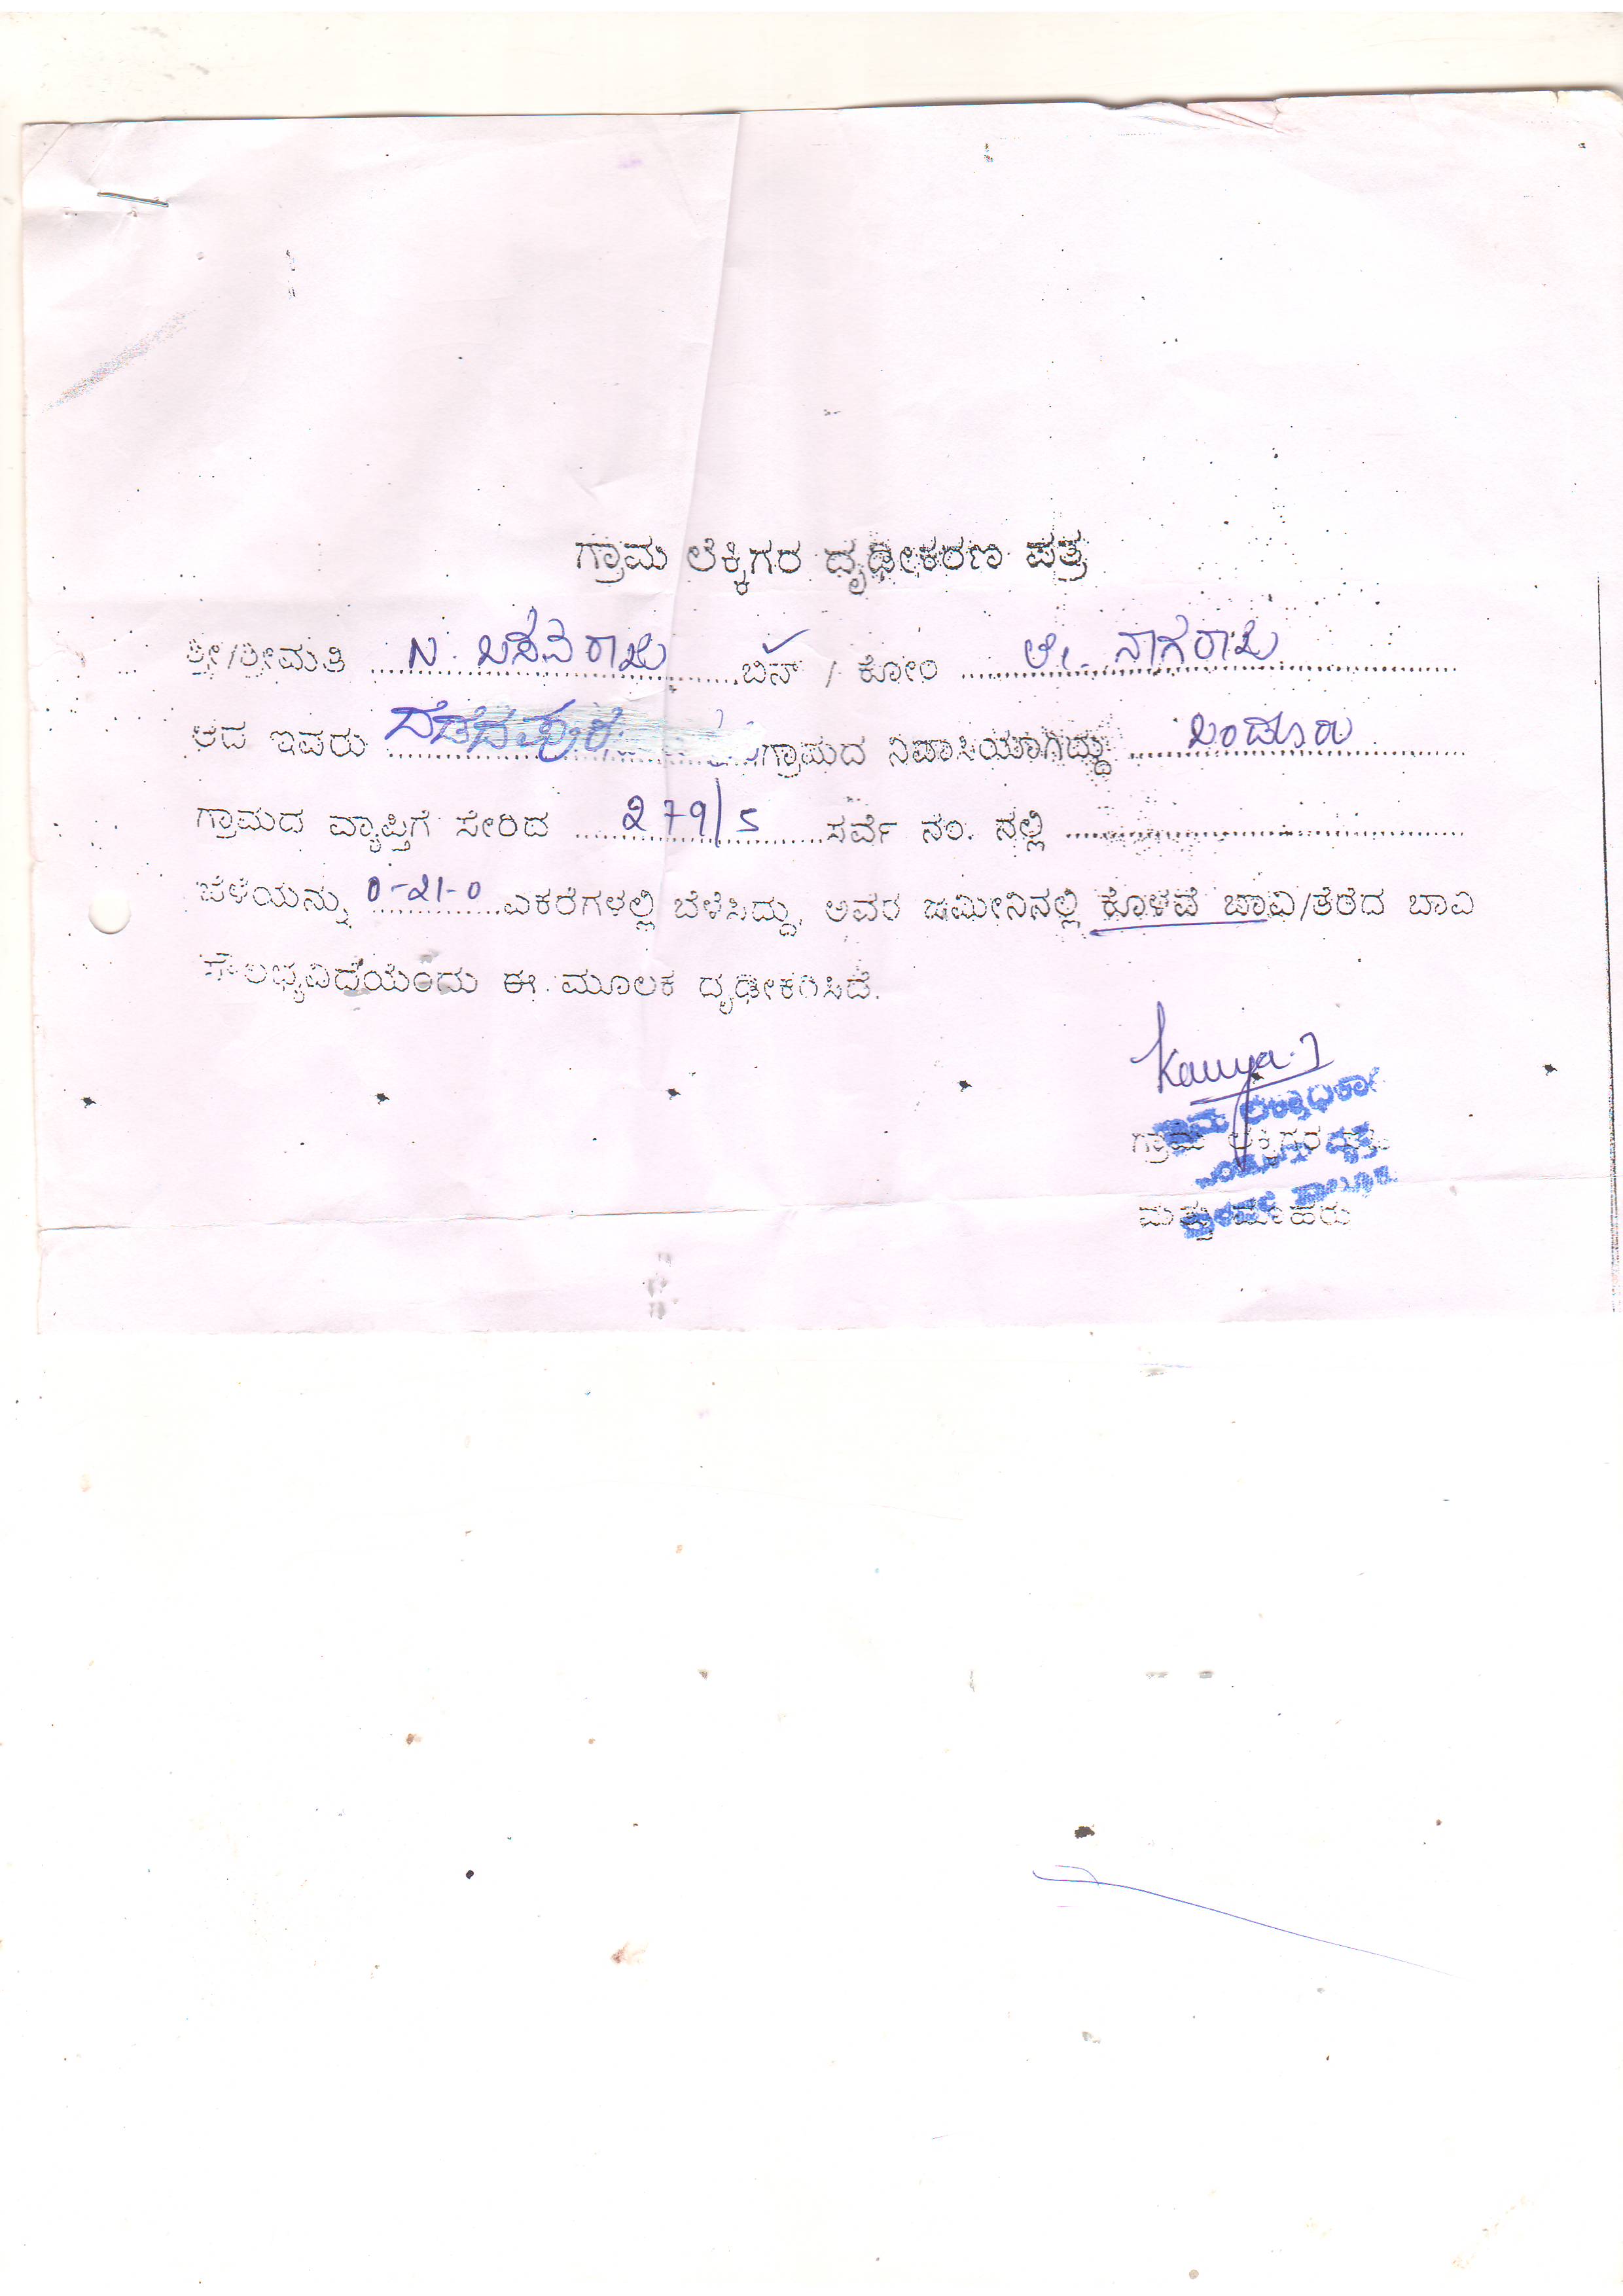 ಗ್ರಾಮ ಲೆಕ್ಕಿಗರ ದೃಢೀಕರಣ ಪತ್ರ
ಶ್ರೀ/ಶ್ರೀಮತಿ N. ಬಸವರಾಜು ಬಿನ್ / ಕೋಂ ಲೇ. ನಾಗರಾಜು
ಆದ ಇವರು ಗ್ರಾಮದ ನಿವಾಸಿಯಾಗಿದ್ದು ಬಂಡೂರು
ಗ್ರಾಮದ ವ್ಯಾಪ್ತಿಗೆ ಸೇರಿದ 279/5 ಸರ್ವೆ ನಂ. ನಲ್ಲಿ
ಬೆಳೆಯನ್ನು 0-21-0 ಎಕರೆಗಳಲ್ಲಿ ಬೆಳೆಸಿದ್ದು, ಅವರ ಜಮೀನಿನಲ್ಲಿ ಕೊಳವೆ ಬಾವಿ/ತೆರೆದ ಬಾವಿ
ಸೌಲಭ್ಯವಿದೆಯೆಂದು ಈ ಮೂಲಕ ದೃಢೀಕರಿಸಿದೆ.
Kavya.J
ಗ್ರಾಮ ಲೆಕ್ಕಿಗರ
ಮತ್ತು ಮೊಹರು